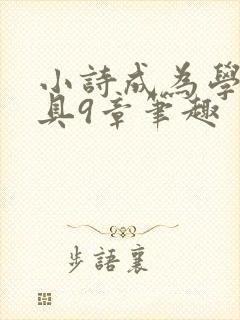 小詩成為學
具9章筆趣
步語襄